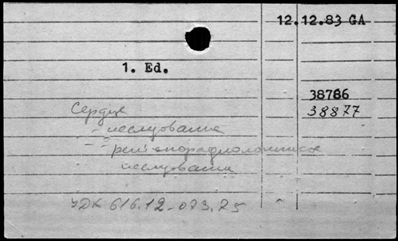 12.12.83 GA
1. Ed.
38786
38877
Сердце
- исследование
- - рентгенорадиологическое
исследование
УДК 616.12-073.75